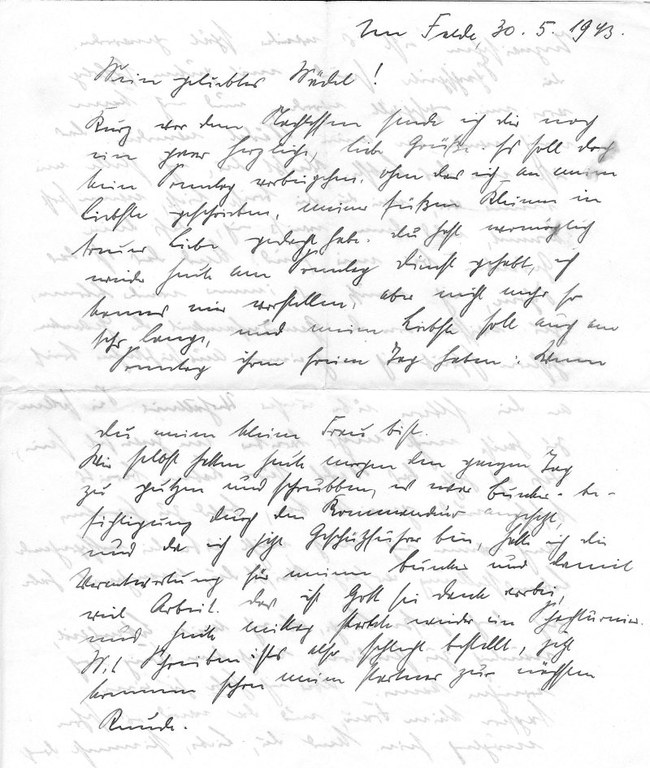 Im Felde, 30. 5. 1943.
Mein geliebtes Mädel!
Kurz vor dem Nachtessen sende ich dir noch
ein paar herzliche, liebe Grüße. Es soll doch
kein Sonntag vorbeigehen, ohne das ich an meine
Liebste geschrieben, meiner süßen Kleinen in
treuer Liebe gedacht habe. Du hast womöglich
wieder heute am Sonntag Dienst gehabt, ich
kann mir vorstellen, aber nicht mehr so
sehr lange, und meine Liebste soll auch am
Sonntag ihren freien Tag haben: Wenn
du meine kleine Frau bist.
Wir selbst hatten heute morgen den ganzen Tag
zu putzen und schrubben, es war Bunker-be-
sichtigung durch den Kommandeur angesagt,
und da ich jetzt Geschützführer bin, hatte ich die
Verantwortung für meinen Bunker und damit
viel Arbeit. Das ist Gott sei dank vorbei,
und heute mittag startete wieder ein Schachturnier.
Mit Schreiben ists also schlecht bestellt, jetzt
kommen schon meine Partner zur nächsten
Runde.